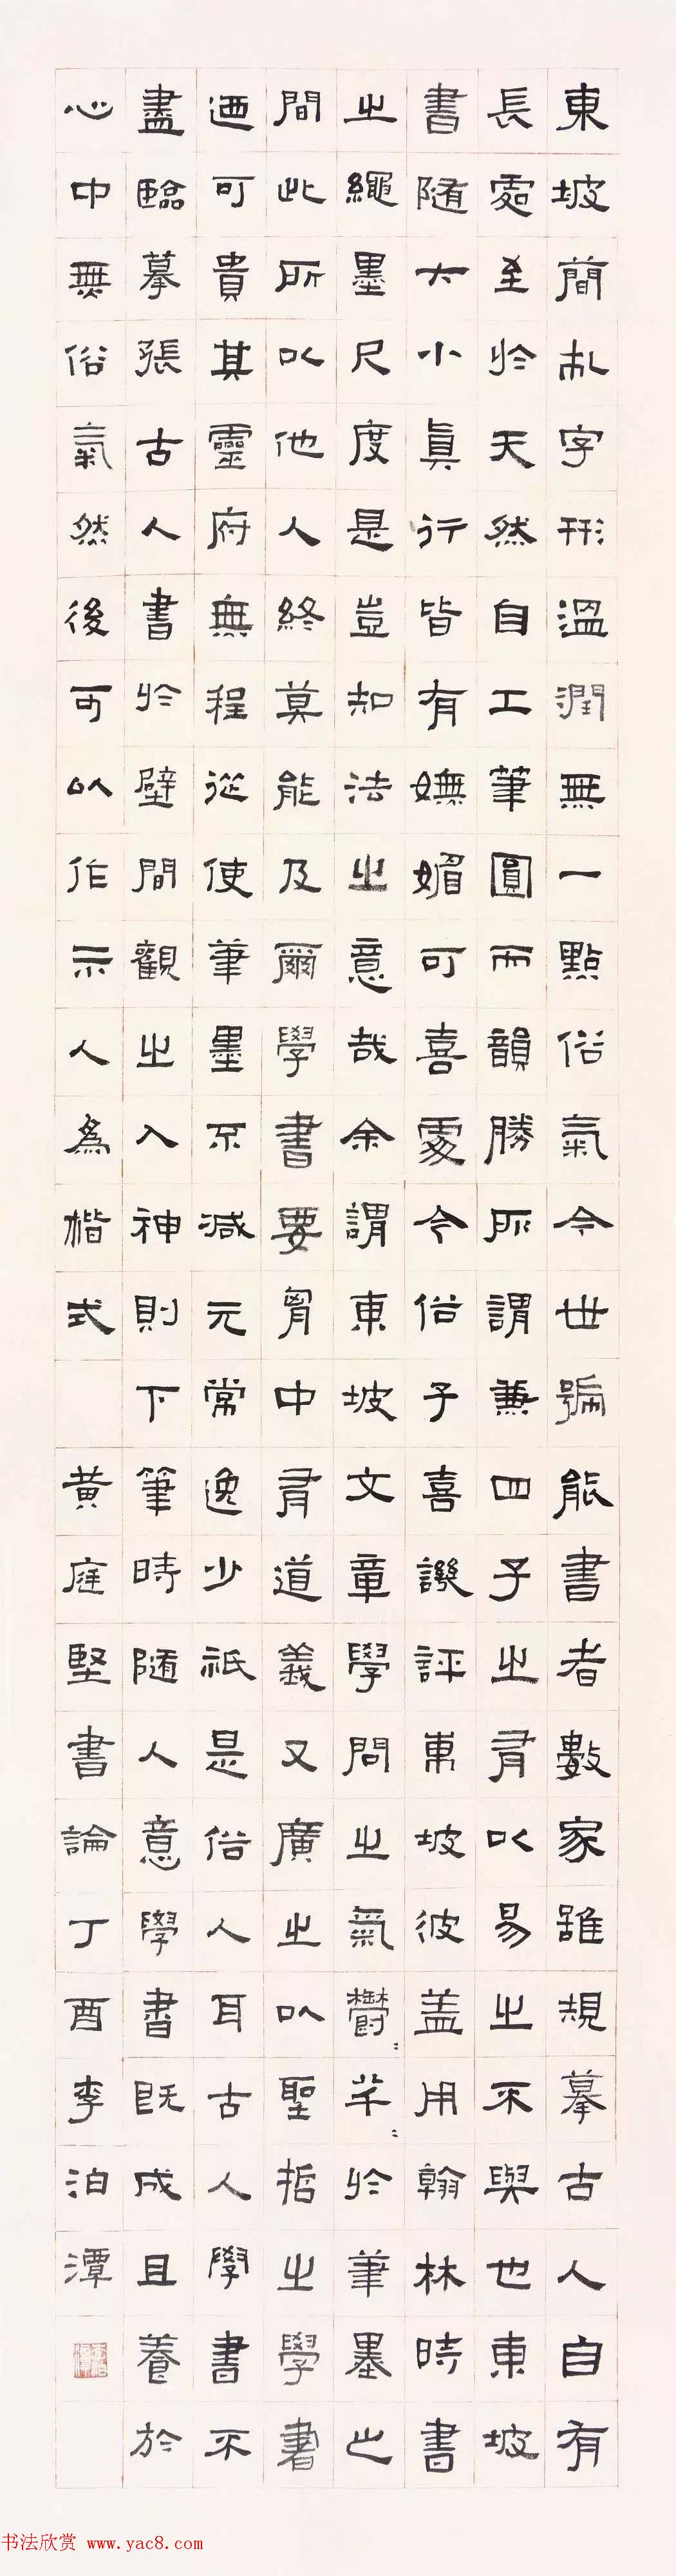 東坡簡札字形溫潤無一點俗氣今世號能書者數家雖規摹古人自有
長處至於天然自工筆圓而韻勝所謂兼四子之有以易之不與也東坡
書隨大小真行皆有嫵媚可喜處今俗子喜譏評東坡彼蓋用翰林時書
之繩墨尺度是豈知法之意哉余謂東坡文章學問之氣鬱〻芊〻於筆墨之
間此所以他人終莫能及爾學書要胷中有道義又廣之以聖哲之學書
迺可貴其靈府無程從使筆墨不減元常逸少祇是俗人耳古人學書不
盡臨摹張古人書於壁間觀之入神則下筆時隨人意學書既成且養於
心中無俗氣然後可以作示人為楷式 黃庭堅書論丁酉李泊潭
书法欣赏 www.yac8.com